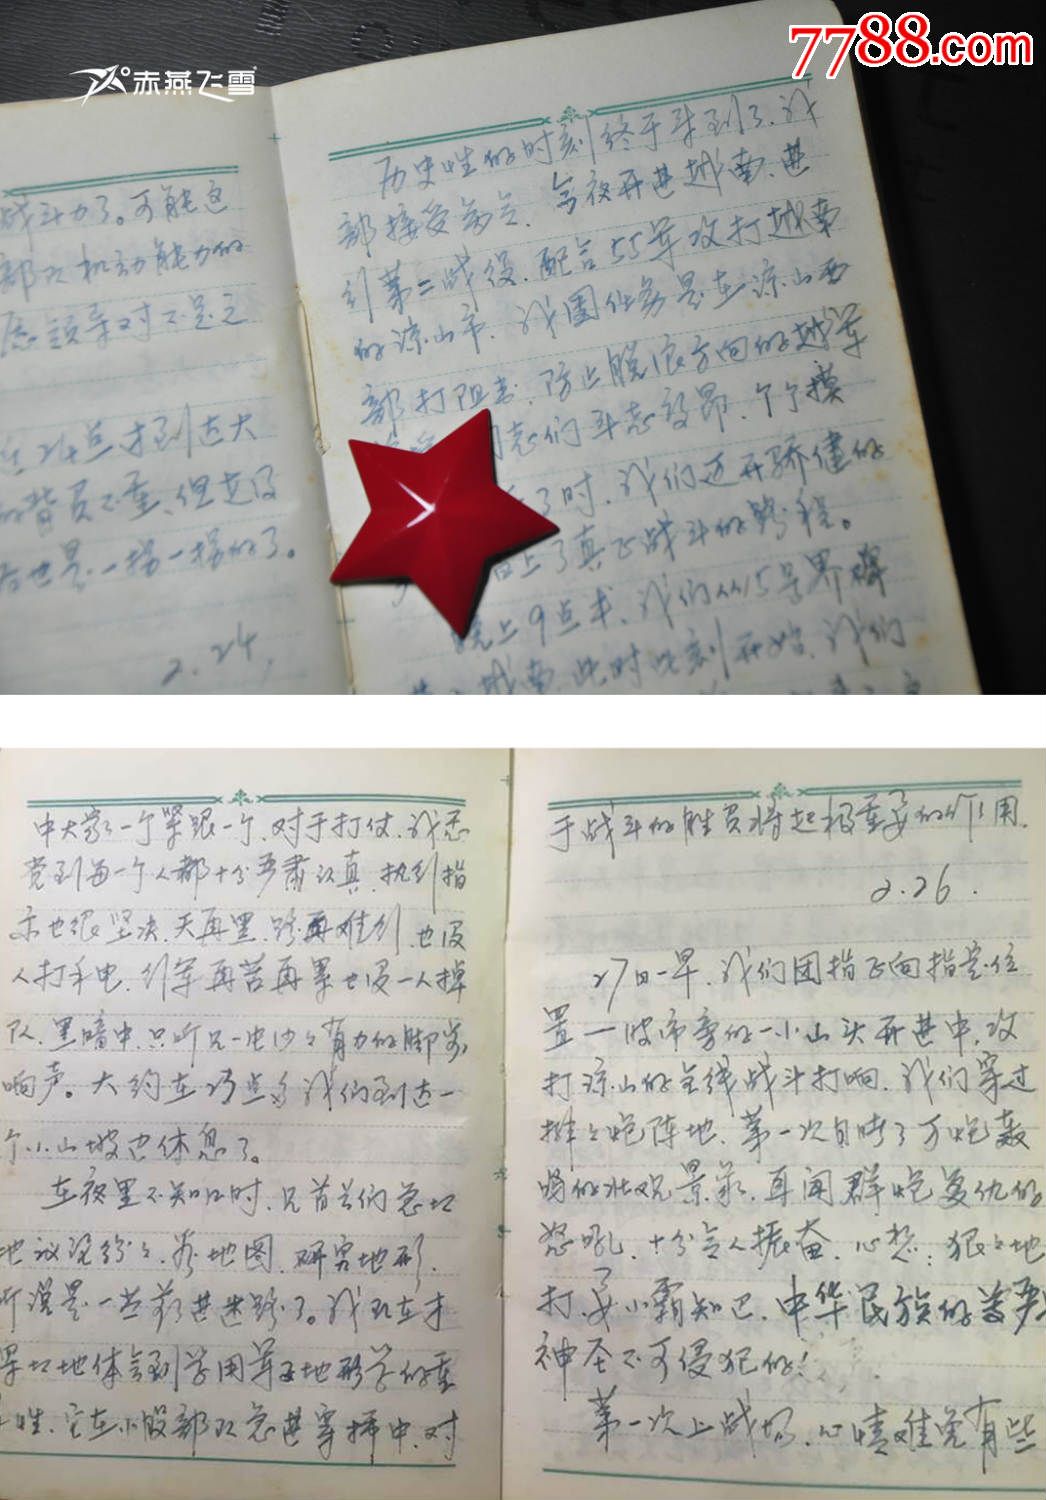 7788.com
赤燕飞雪
战斗力了。可能这
部队机动能力的
领导对不是之
24点才到达大
的背负不重,但走没
后也是一拐一拐的了。
2.24,
历史性的时刻终于来到了,我
部接受命令,今夜开进越南,进
行第二战役,配合55军攻打越南
的凉山市,我团任务是在凉山西
部打阻击,防止脱浪方向的越军
同志们斗志, 个个摸
了时,我们迈开骄健的
上了真正战斗的路程。
晚上9点半,我们从15号界碑
越南,此时此刻开始,我们
中大家一个紧跟一个,对于打仗,我感
觉到每一个人都十分严肃认真,执行指
示也很坚决,天再黑,路再难行,也没
人打手电,行军再苦再累也没一人掉
队,黑暗中,只听见一串沙沙有力的脚步
响声。大约在 点多我们到达一
个小山坡边休息了。
在夜里不知几时,只首长们急切
地议论纷纷,看地图,研究地形,
听说是一些前进迷路了。我现在才
深切地体会到学用军事地形学的重
性,它在小股部队急进穿插中,对
于战斗的胜负将起极重要的作用。
2.26.
27日一早,我们团指正向指定位
置一坡帝旁的一小山头开进中,攻
打凉山的全线战斗打响,我们穿过
排排炮阵地,第一次目睹了万炮轰
鸣的壮观景象,耳闻群炮复仇的
怒吼,十分令人振奋,心想:狠狠地
打,要小霸知已,中华民族的尊严是
神圣不可侵犯的!
第一次上战场,心情难免有些